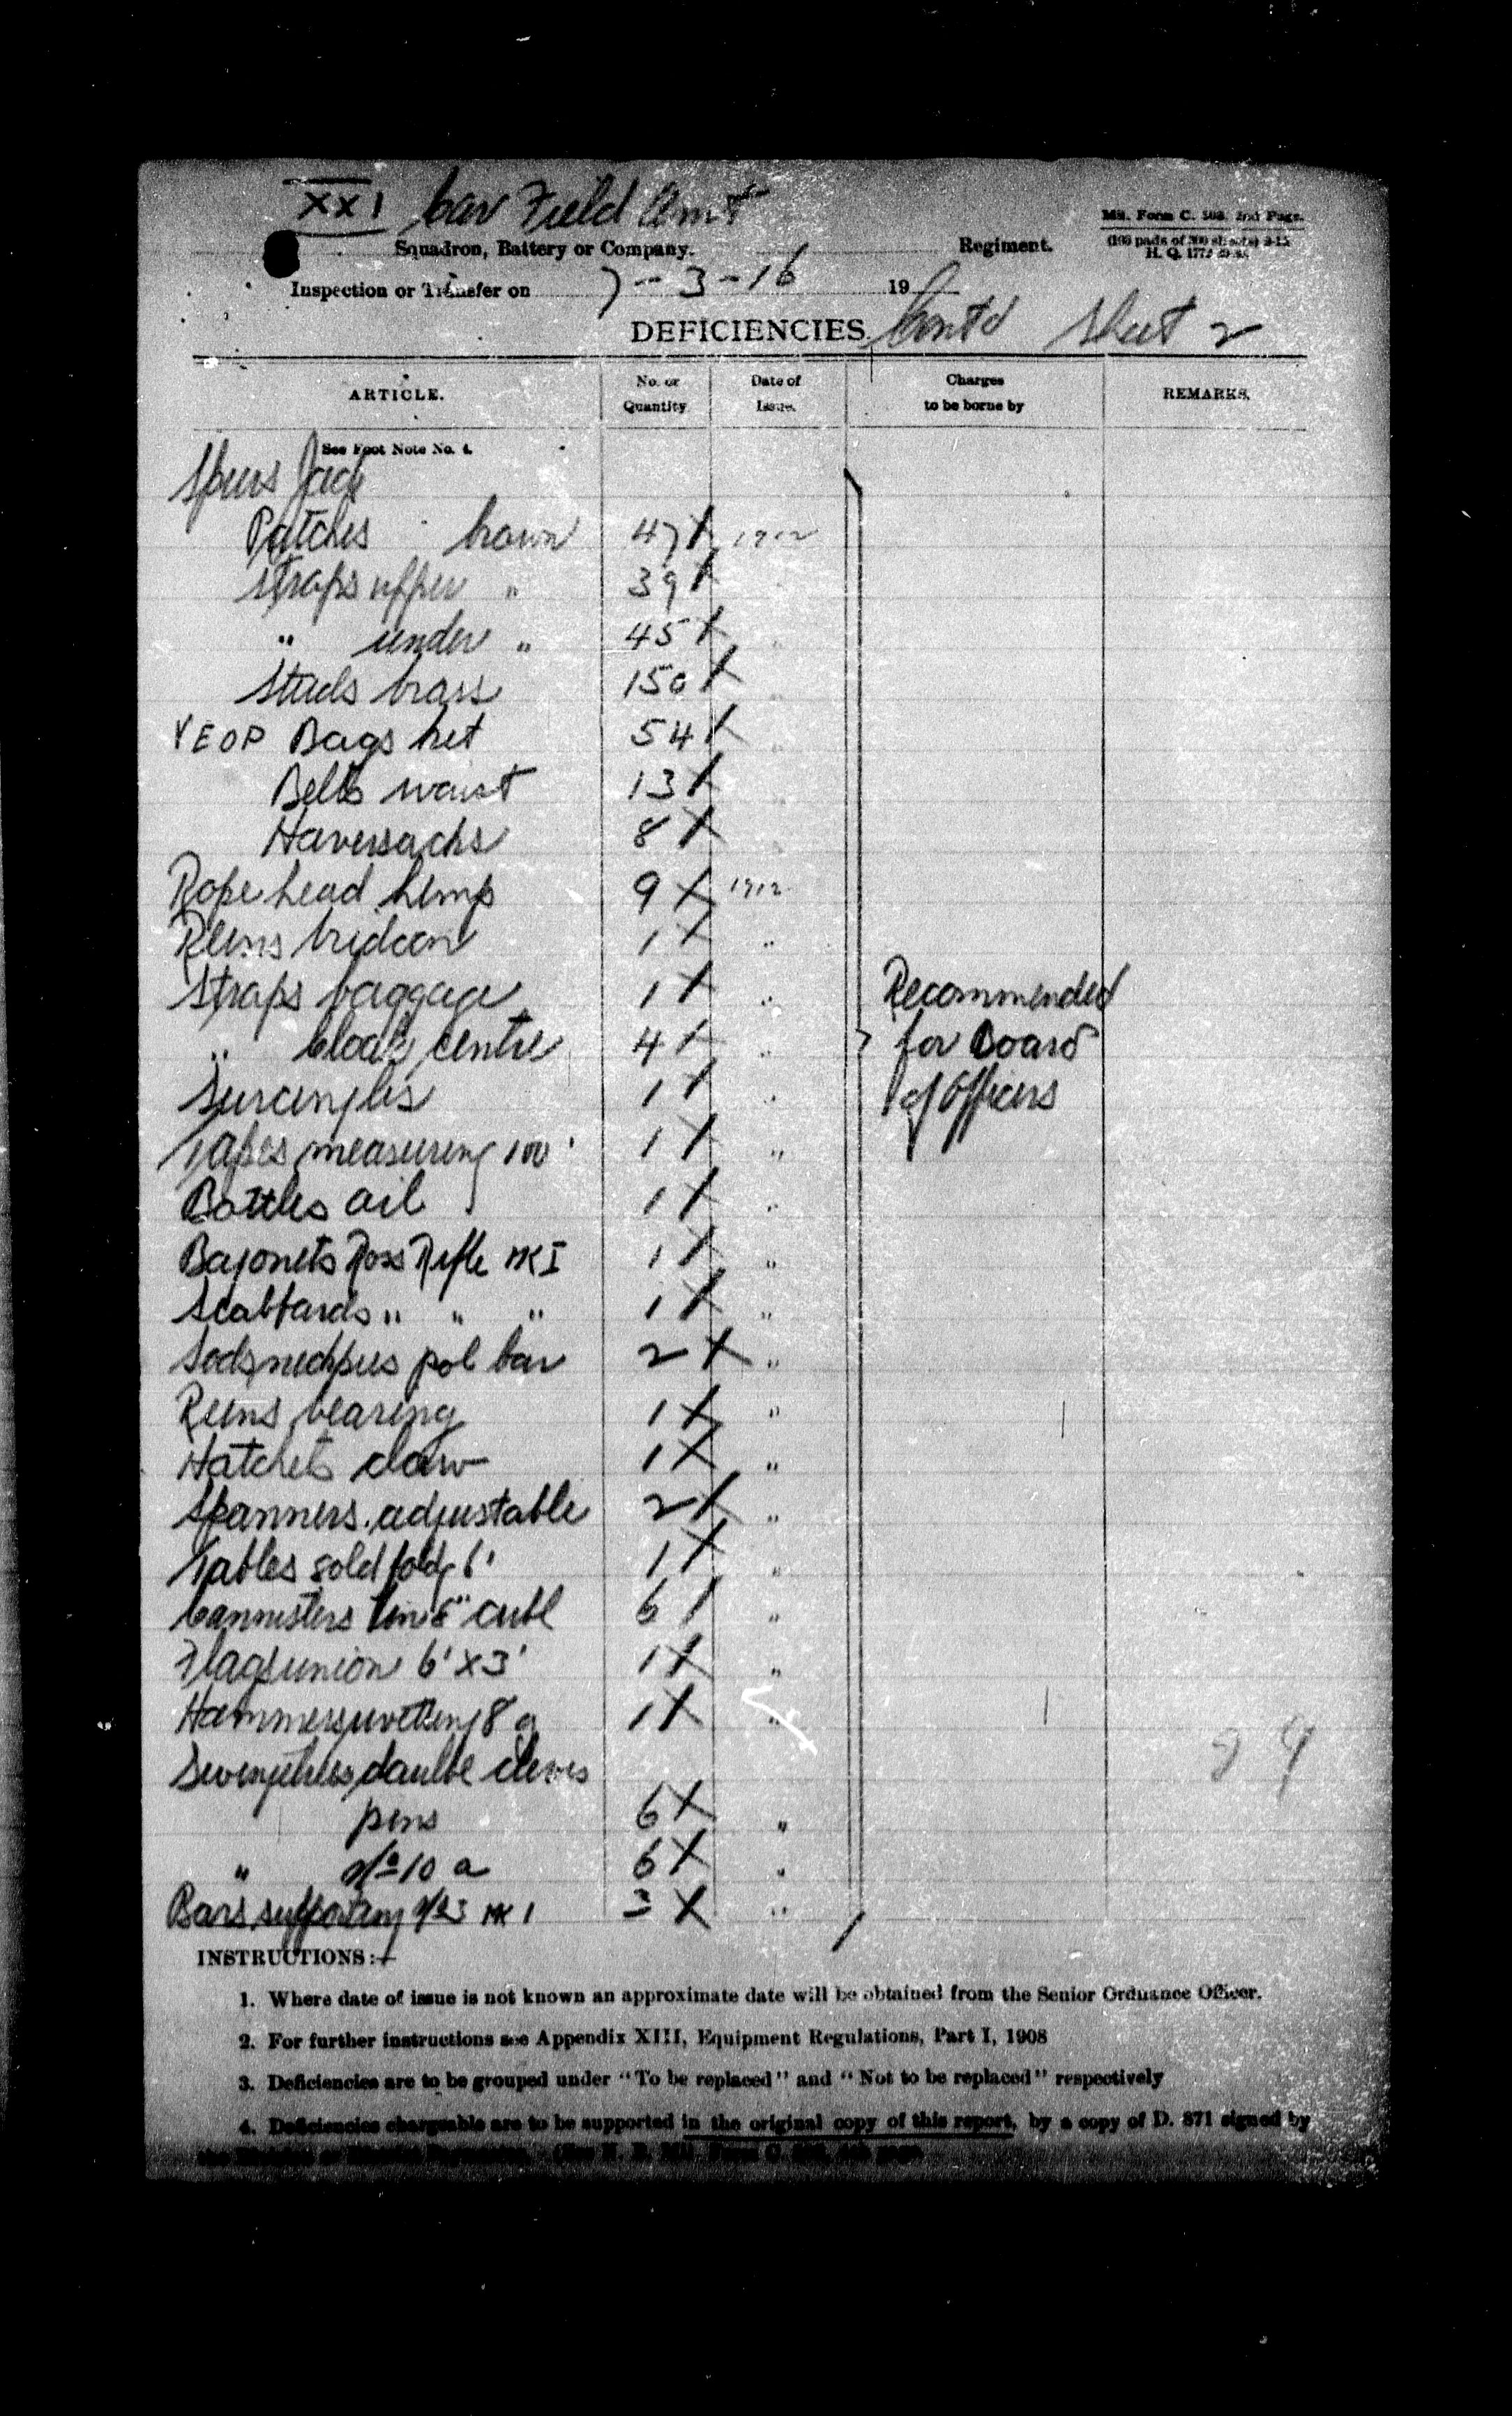 XXI Cav Field Amb
Mil. Form C. 508. 2nd Page.
(100 pads of 200 sheets) 2-15
H. Q. 1772
Squadron, Battery or Company. Regiment.
Inspection or Transfer on 7-3-16 19
DEFICIENCIES Contd Sheet 2
ARTICLE. No. or Quantity Date of Issue. Charges to be borne by REMARKS.
See Foot Note No. 4.
Spurs Jack
Patches brown 47 X 1912
Straps upper " 39 X
" under " 45 X "
Studs brass 150 X "
VEOP Bags net 54 X "
Belts waist 13 X "
Haversacks 8 X "
Rope head hemp 9 X 1912
Reins bridoon 1 X "
Straps baggage 1 X "
" cloak centre 4 X "
Surcingles 1 X "
Tapes measuring 100' 1 X "
Bottles oil 1 X "
Bayonets Ross Rifle MK I 1 X "
Scabbards " " " 1 X "
pol bar 2 X "
Reins bearing 1 X "
Hatchets claw 1 X "
Spanners adjustable 2 X "
Tables sold fold 6' 1 X "
Cannisters tin 8" cube 6 / "
Flags union 6' X 3' 1 X "
Hammers rivetting 8 a 1 X "
Swingletrees double clevis
pins 6 X "
" No 10 a 6 X "
Bars supporting No 3 MK 1 3 X "
Recommended
for Board
of Officers
INSTRUCTIONS:—
1. Where date of issue is not known an approximate date will be obtained from the Senior Ordnance Officer.
2. For further instructions see Appendix XIII, Equipment Regulations, Part I, 1908
3. Deficiencies are to be grouped under "To be replaced" and "Not to be replaced" respectively
4. Deficiencies chargeable are to be supported in the original copy of this report, by a copy of D. 871 signed by